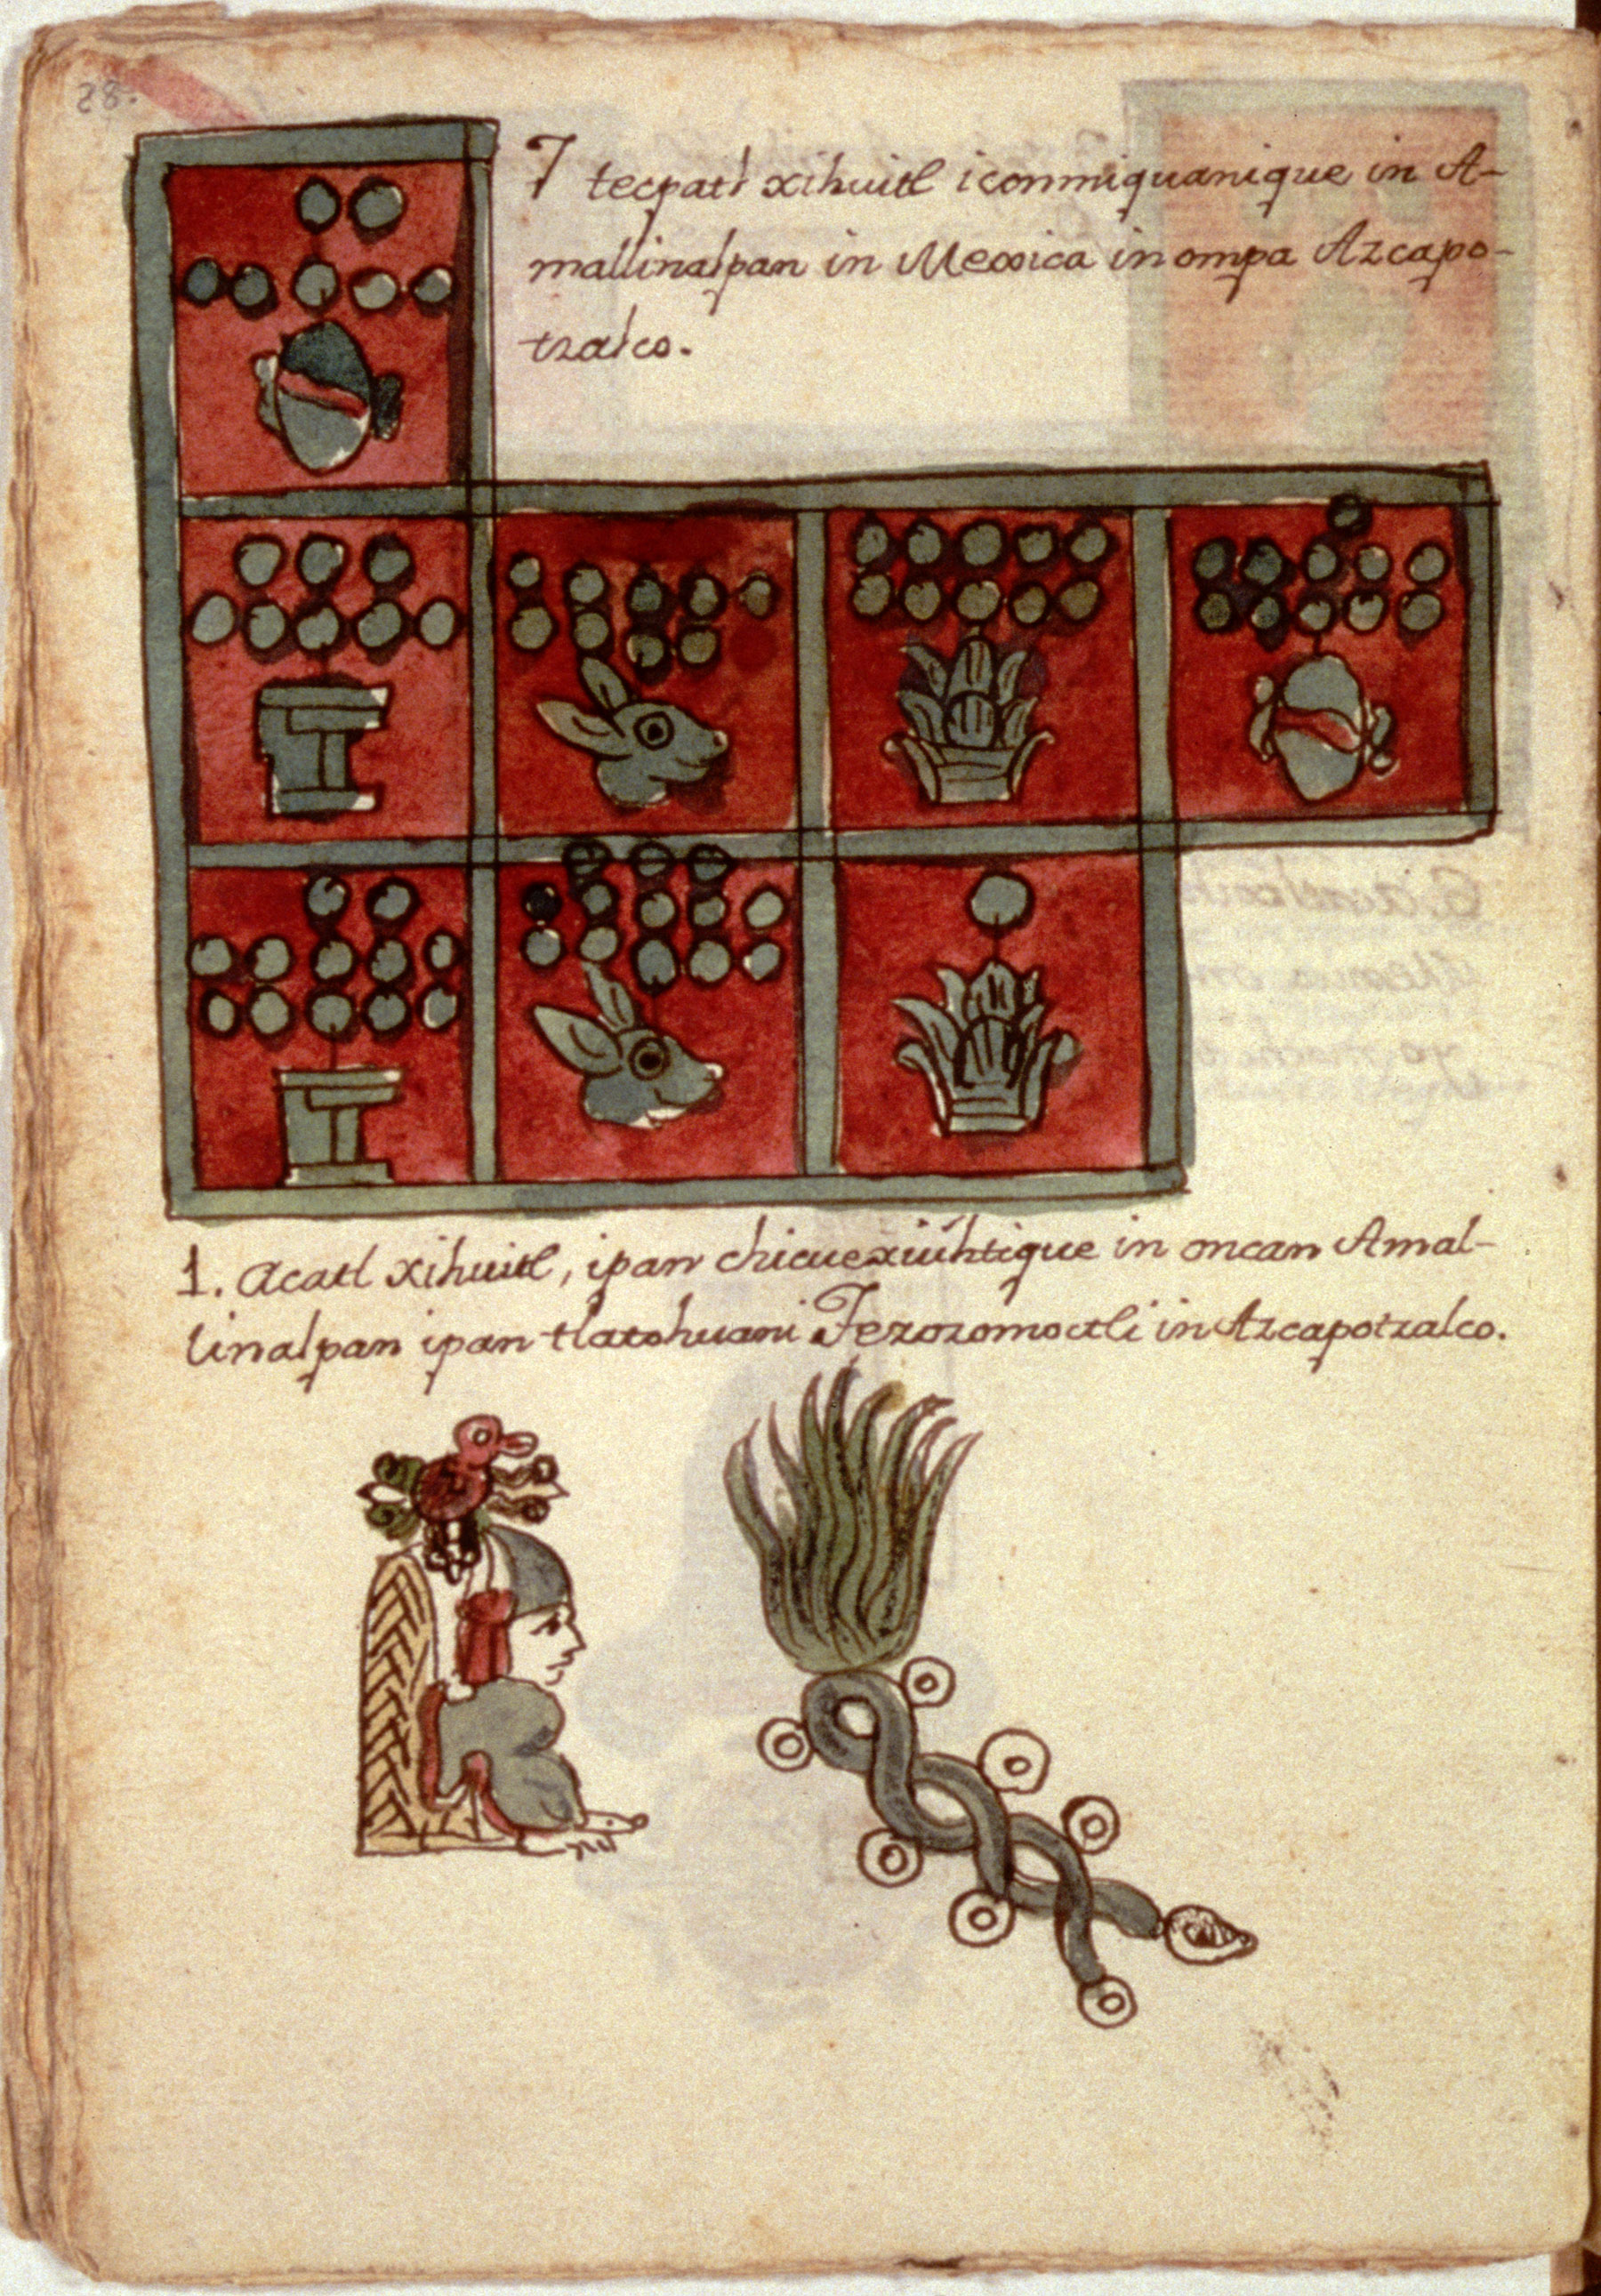 28.
7 tecpatl xihuitl iconmiquanique in A-
mallinalpan in Mexica in ompa Azcapo-
tzalco.
1. Acatl xihuitl, ipan chicuexiuhtique in oncan Amal-
linalpan ipan tlatohuani Tezozomoctli in Azcapotzalco.